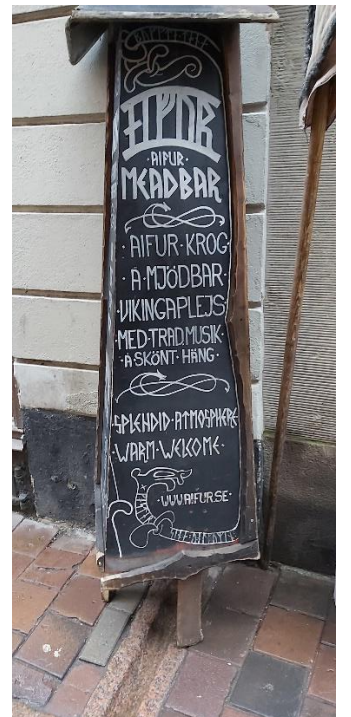 ·AIFUR·
MEADBAR
·AIFUR·KROG
·A·MJÖDBAR·
·VIKINGAPLEJS·
·MED·TRAD.MUSIK·
·A·SKÖNT·HÄNG·
·SPLENDID·ATMOSPHERE
·WARM·WELCOME·
·WWW.AIFUR.SE·